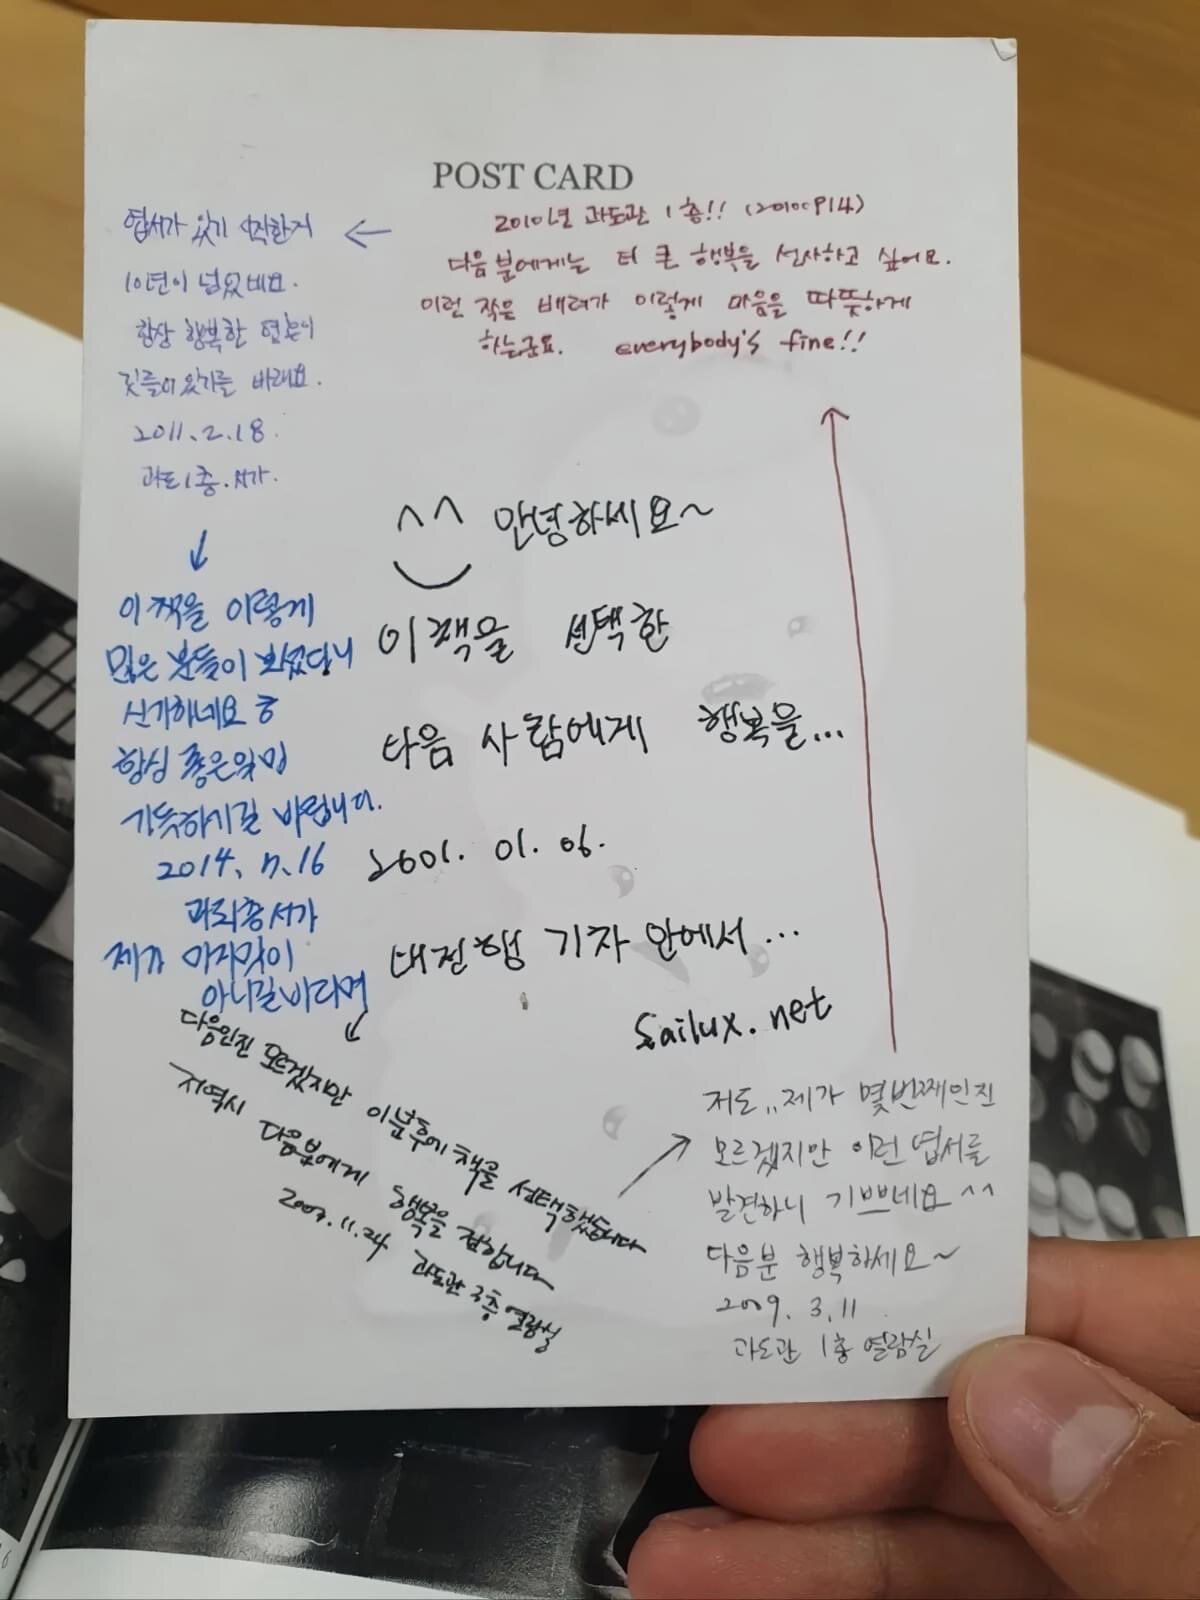 POST CARD
2010년 과도관 1층!! (20100914)
다음 분에게는 더 큰 행복을 선사하고 싶어요.
이런 작은 배려가 이렇게 마음을 따뜻하게
하는군요. everybody's fine!!
엽서가 있기 시작한지
10년이 넘었네요.
항상 행복한 영혼이
깃들어있기를 바래요.
2011.2.18.
과도1층.서가.
^^ 안녕하세요~
이 책을 선택한
다음 사람에게 행복을...
2001. 01. 06.
대전행 기차 안에서...
Sailux.net
이 책을 이렇게
많은 분들이 보셨다니
신기하네요 ㅎ
항상 좋은일만
가득하시길 바랍니다.
2014. 7. 16
서가
제가 마지막이
아니길바라며
다음인진 모르겠지만 이분후에 책을 선택했습니다
저역시 다음분에게 행복을 전합니다
11.24 과도관 3층 열람실
저도.. 제가 몇번째인진
모르겠지만 이런 엽서를
발견하니 기쁘네요 ^^
다음분 행복하세요~
2009. 3. 11.
과도관 1층 열람실